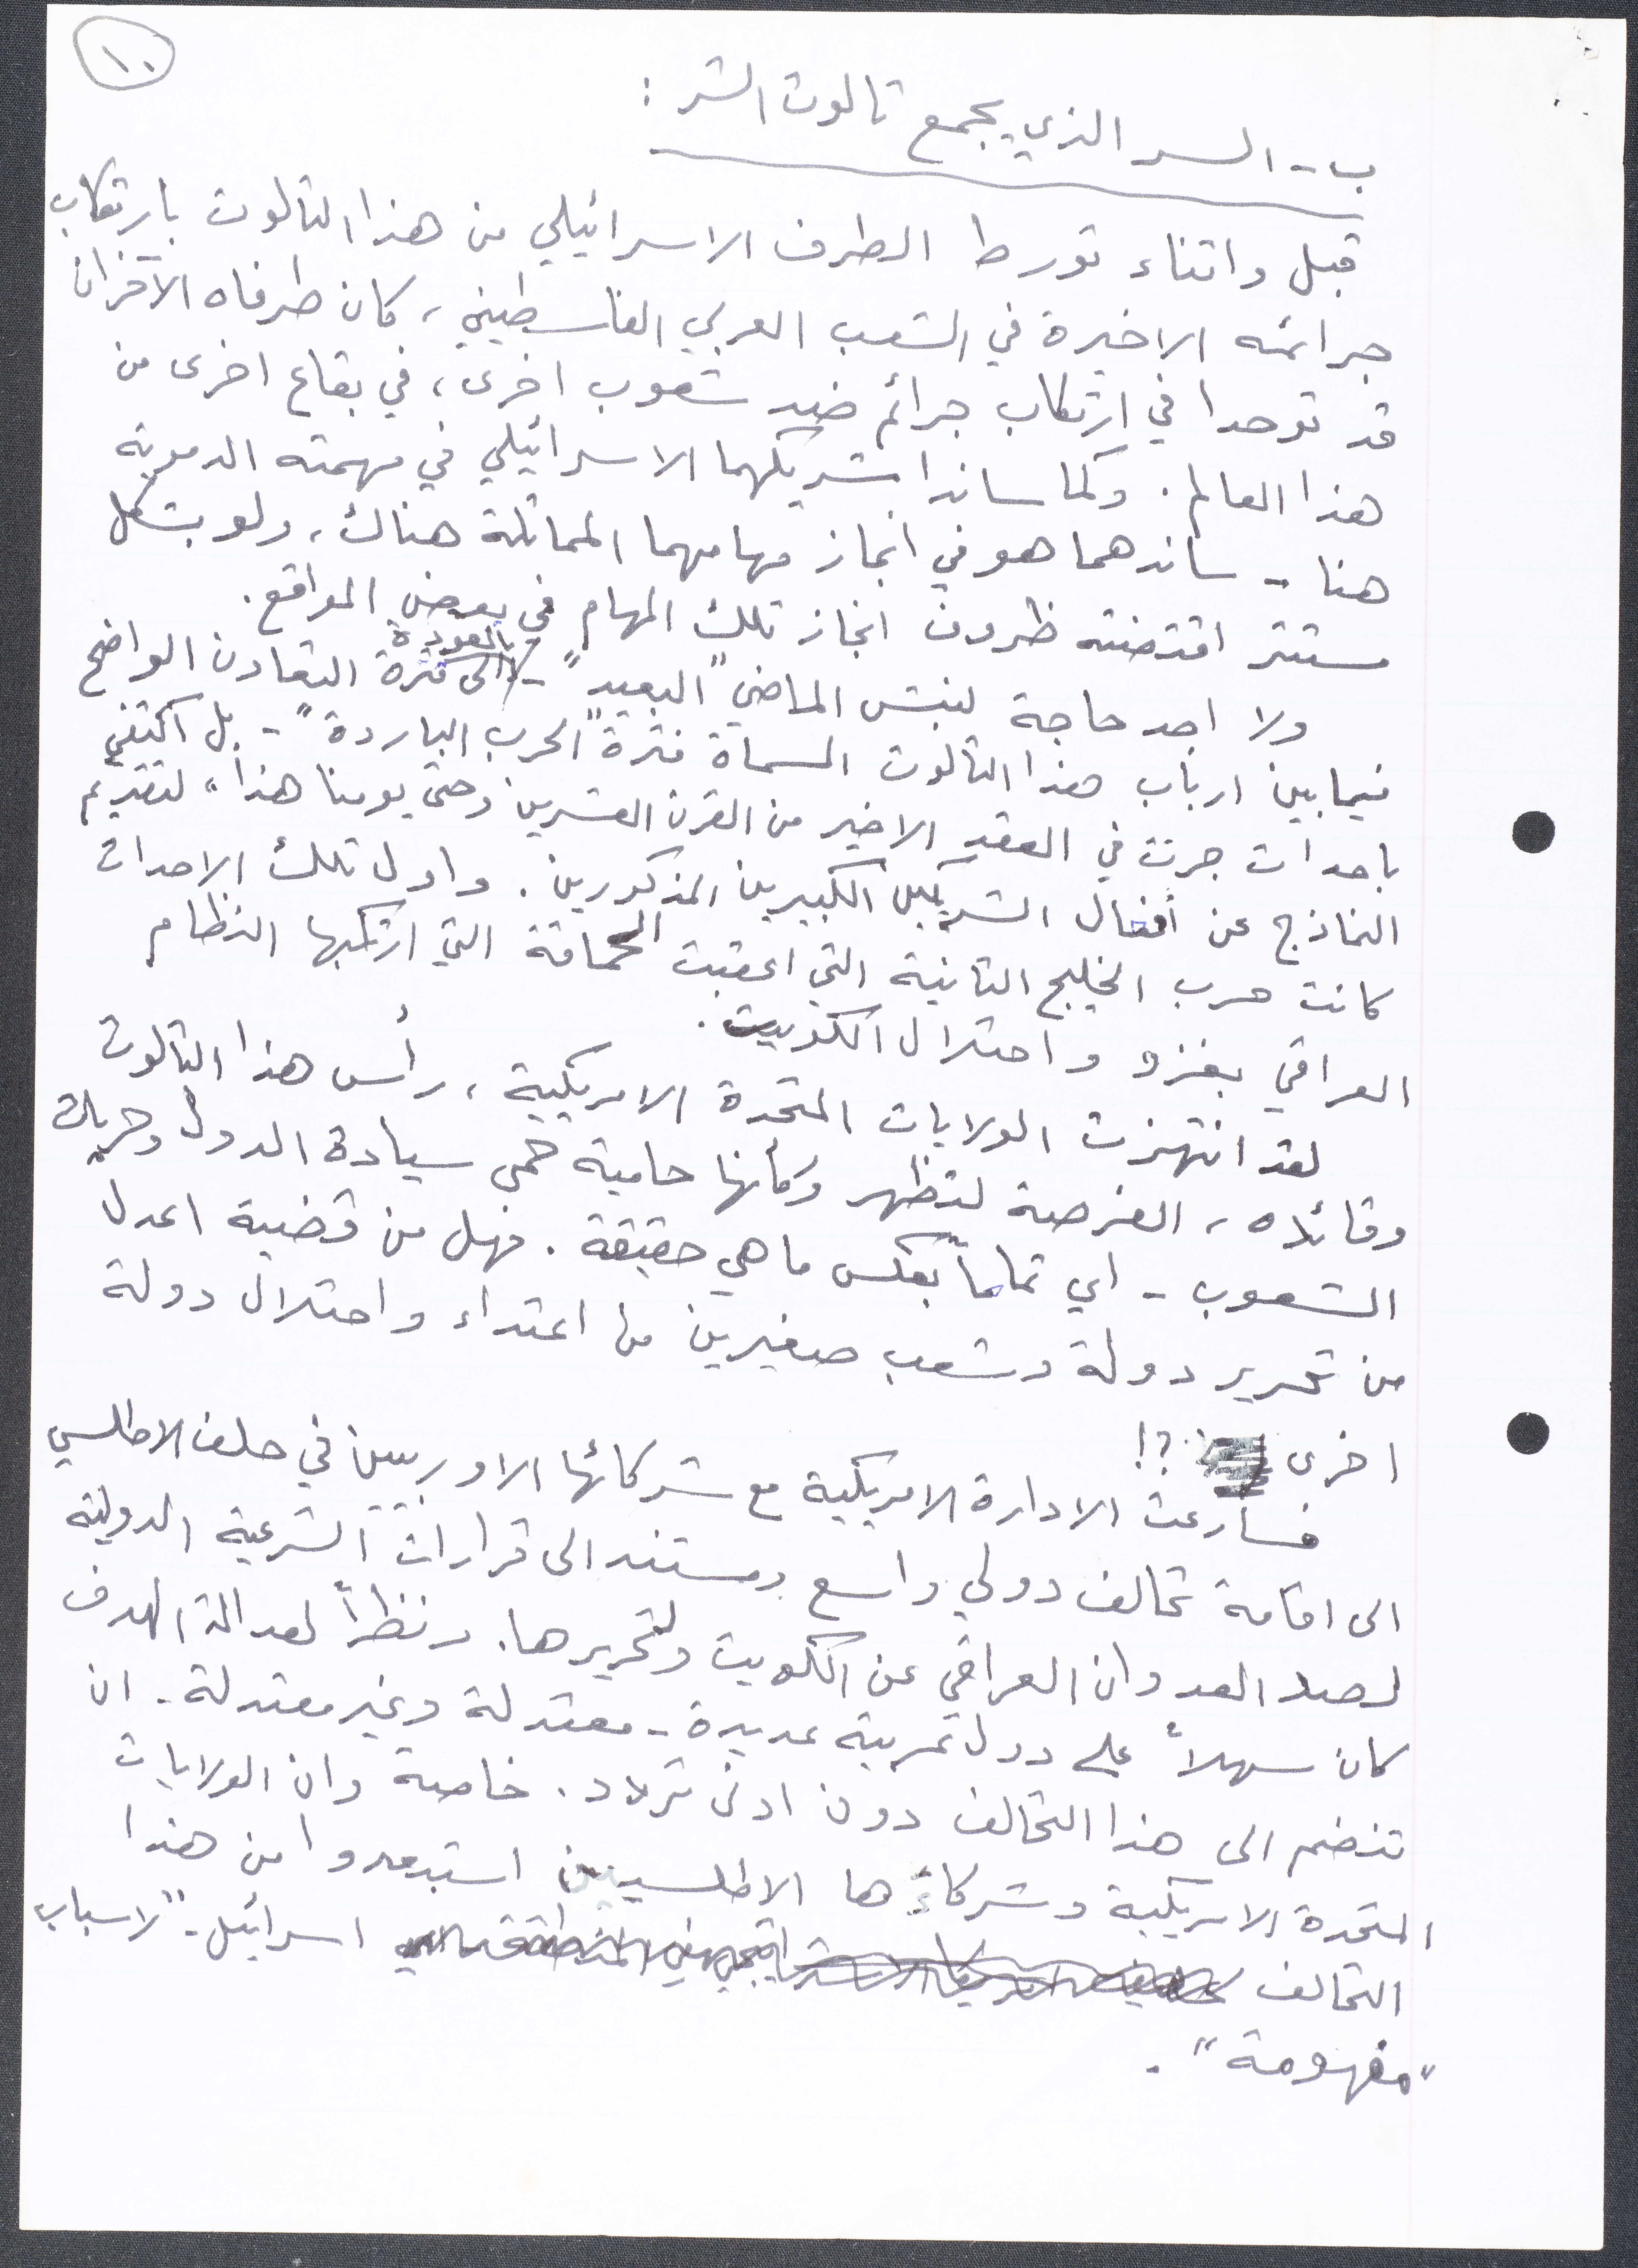 ١٠
ب - السر الذي يجمع ثالوث الشر :
قبل واثناء تورط الطرف الاسرائيلي من هذا الثالوث بارتكاب
جرائمه الاخيرة في الشعب العربي الفلسطيني، كان طرفاه الآخران
قد توحدا في ارتكاب جرائم ضد شعوب اخرى، في بقاع اخرى من
هذا العالم. وكما ساندا شريكهما الاسرائيلي في مهمته الدموية
هنا - ساندهما هو في انجاز مهامهما المماثلة هناك، ولو بشكل
مستتر اقتضته ظروف انجاز تلك المهام في بعض المواقع.
ولا اجد حاجة لنبش الماضي "البعيد" - بالعودة الى فترة التعاون الواضح
فيما بين ارباب هذا الثالوث المسماة فترة "الحرب الباردة" - بل اكتفي
باحداث جرت في العقد الاخير من القرن العشرين وحتى يومنا هذا، لتقديم
النماذج عن افعال الشريكين الكبيرين المذكورين. واول تلك الاحداث
كانت حرب الخليج الثانية التي اعقبت الحماقة التي ارتكبها النظام
العراقي بغزو واحتلال الكويت.
لقد انتهزت الولايات المتحدة الامريكية، رأس هذا الثالوث
وقائده، الفرصة لتظهر وكأنها حامية حمى سيادة الدول وحريات
الشعوب - اي تماماً بعكس ما هي حقيقة. فهل من قضية اعدل
من تحرير دولة وشعب صغيرين من اعتداء واحتلال دولة
اخرى ؟!
فسارعت الادارة الامريكية مع شركائها الاوربيين في حلف الاطلسي
الى اقامة تحالف دولي واسع ومستند الى قرارات الشرعية الدولية
لصد العدوان العراقي عن الكويت ولتحريرها. ونظراً لعدالة الهدف
كان سهلاً على دول عربية عديدة - معتدلة وغير معتدلة - ان
تنضم الى هذا التحالف دون ادنى تردد. خاصة وان الولايات
المتحدة الامريكية وشركاءها الاطلسيين استبعدوا من هذا
التحالف اسرائيل - "لاسباب
"مفهومة" .